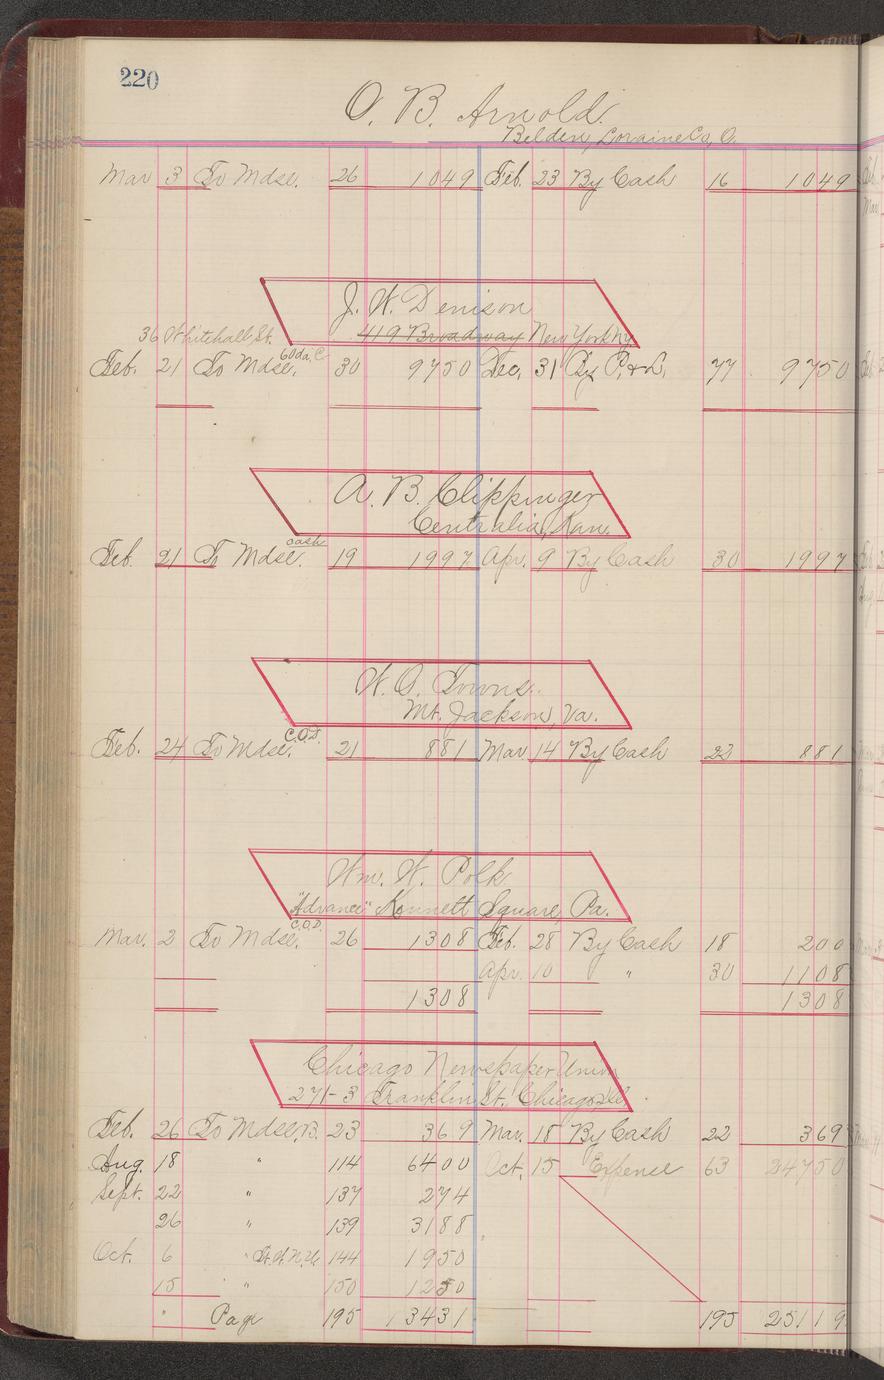 220
O. B. Arnold.
Belden, Loraine Co, O.
Mar 3 To Mdse. 26 1049 Feb. 23 By Cash 16 1049
J. W. Denison
36 Whitehall St. 419 Broadway New York Ny
Feb. 21 To Mdse. 60 da. 30 9750 Dec. 31 By P. & L. 77 9750
A. B. Clippinger
Centralia, Kan.
Feb. 21 To Mdse. cash 19 1997 Apr. 9 By Cash 30 1997
W. O. Towns.
Mt. Jackson, Va.
Feb. 24 To Mdse. C.O.D. 21 881 Mar 14 By Cash 22 881
Wm. W. Polk
"Advance" Kennett Square, Pa.
Mar. 2 To Mdse. C.O.D. 26 1308 Feb. 28 By Cash 18 200
Apr. 10 " 30 1108
1308 1308
Chicago Newspaper Union
271-3 Franklin St. Chicago Ill.
Feb. 26 To Mdse. B. 23 369 Mar. 18 By Cash 22 369
Aug. 18 " 114 6400 Oct. 15 Expense 63 24750
Sept. 22 " 137 274
26 " 139 3188
Oct. 6 " 144 1950
15 " 150 1250
" Page 195 13431 195 25119